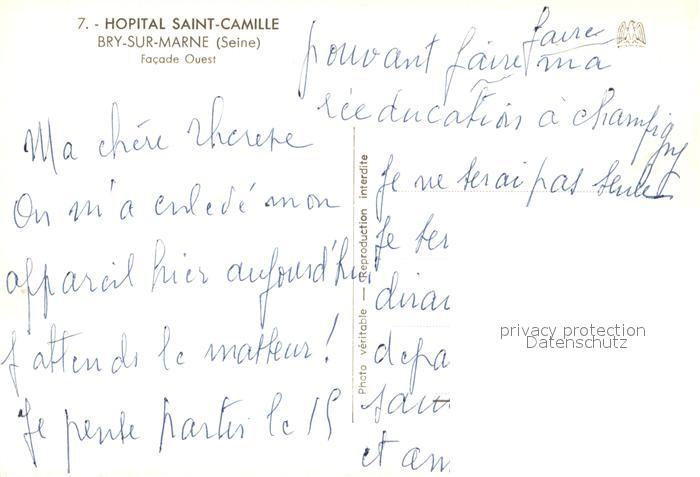 7. - HOPITAL SAINT-CAMILLE
BRY-SUR-MARNE (Seine)
Façade Ouest
Ma chère Therese
On m'a enlevé mon
appareil hier aujourd'hui
j'attends le masseur!
Je pense partir le 15
pouvant faire faire ma
rééducation à Champigny
Je ne serai pas seule
Je ser
dirai
depa
sau
et am
Photo véritable — Reproduction interdite
privacy protection
Datenschutz